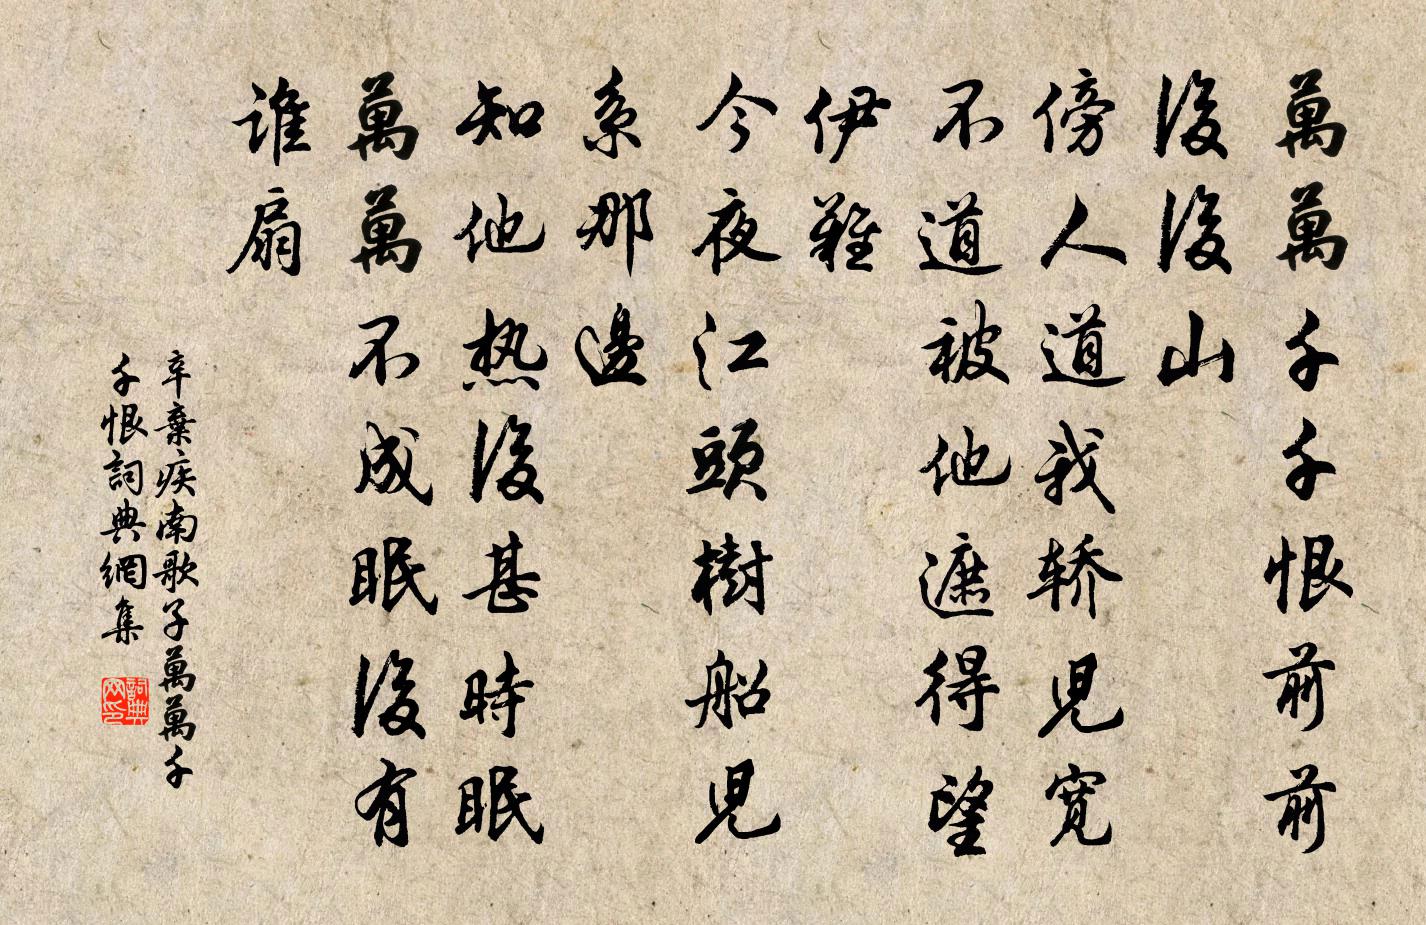 萬萬千千恨前前
後後山
傍人道我轿児寛
不道被他遮得望
伊難
今夜江頭樹船児
系那邊
知他热後甚時眠
萬萬不成眠後有
誰扇
辛棄疾南歌子萬萬千
千恨詞典網集
詞典网印